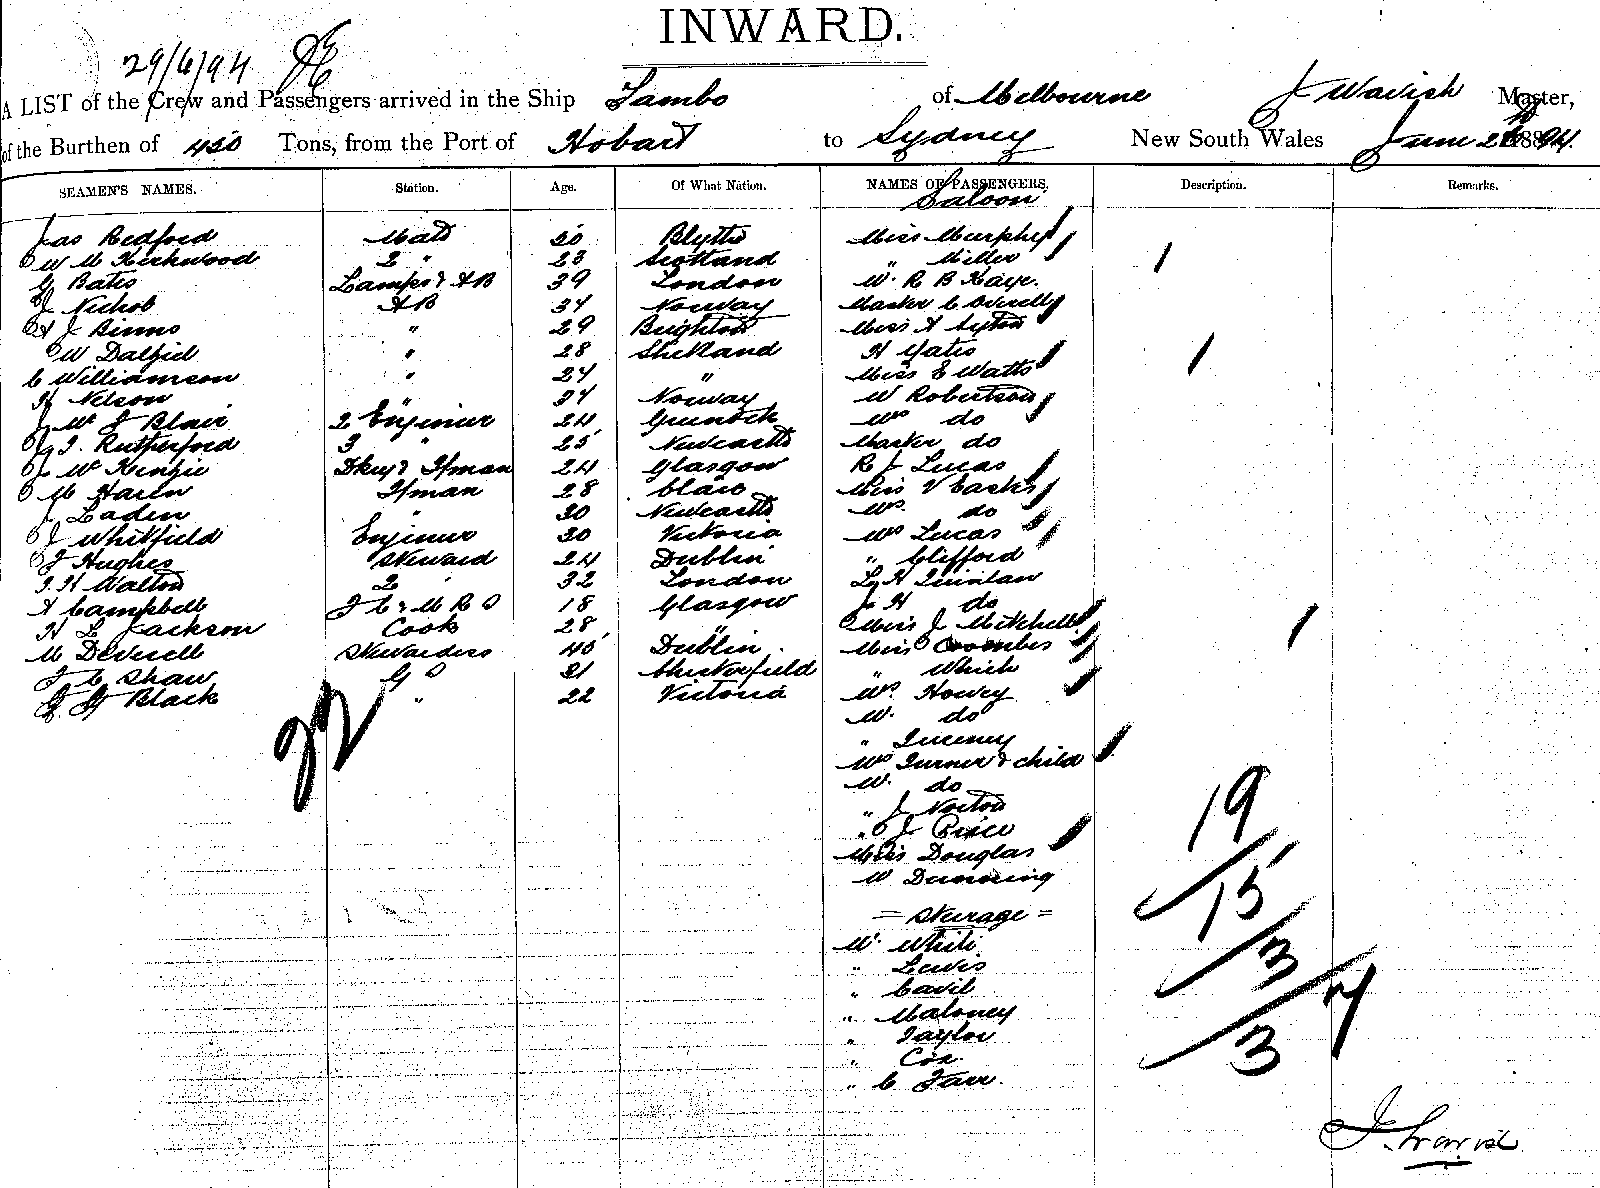 INWARD.
29/6/94
A LIST of the Crew and Passengers arrived in the Ship Tambo of Melbourne J Wavish Master,
of the Burthen of 450 Tons, from the Port of Hobart to Sydney New South Wales June 94.
SEAMEN'S NAMES. Station. Age. Of What Nation. NAMES OF PASSENGERS. Description. Remarks.
Saloon
Jas Bedford Mate 50 Blyth Miss Murphy
W M Kirkwood 2 " 23 Scotland " Miller
G Bates Lamps & AB 39 London W. R B Kaye.
J Nichol AB 34 Norway Master C Overell
A J Binns " 29 Brighton Miss A
W Dalziel " 28 Shetland H Yates
C Williamson " 24 " Miss E Watts
H Nelson " 34 Norway W Robertson
J Mc J Blair 2 Engineer 24 Greenock Mrs do
J. Rutherford 3 " 25 Newcastle Master do
J McKenzie Dkey & Fman 24 Glasgow R J Lucas
M Haren Fman 28 Clare Miss V
J Laden " 30 Newcastle Mrs do
J Whitfield Engineer 30 Victoria Mrs Lucas
J Hughes Steward 24 Dublin " Clifford
J. H Walton 2 " 32 London L H Quinlan
A Campbell F C & M R S 18 Glasgow J H do
H L Jackson Cook 28 " Miss J Mitchell
M Deverell Stewardess 40 Dublin. Miss Coombes
J C Shaw G S 21 Chesterfield "
J. G Black " 22 Victoria Mrs. Howey
22
M. do
"
Mrs Turner & child
M. do
" J Norton
" J Price
Miss Douglas
M Dunning
= Steerage =
M. White
" Lewis
" Cavil
" Maloney
" Taylor
" Cox.
" C Farr.
19
15
3
3
J. Wavish